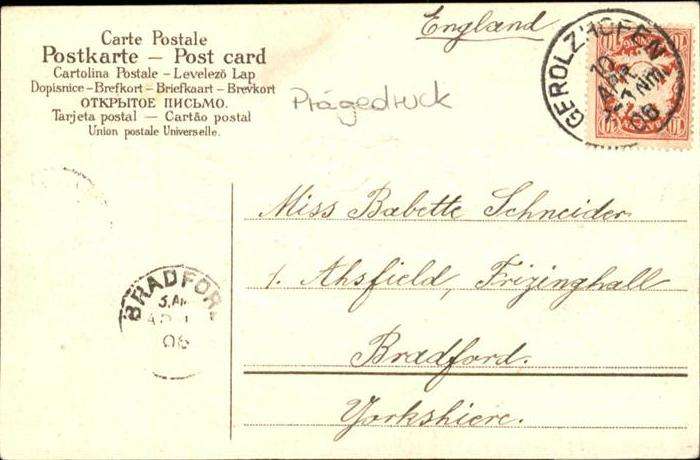 Carte Postale
Postkarte – Post card
Cartolina Postale – Levelező Lap
Dopisnice – Brefkort – Briefkaart – Brevkort
ОТКРЫТОЕ ПИСЬМО.
Tarjeta postal – Cartão postal
Union postale Universelle.
England
Prägedruck
GEROLZHOFEN
10
APR
NM.
06
10
10
Miss Babette Schneider
1. Ahsfield, Frizinghall
Bradford.
Yorkshiere.
BRADFOR
5. AM
06